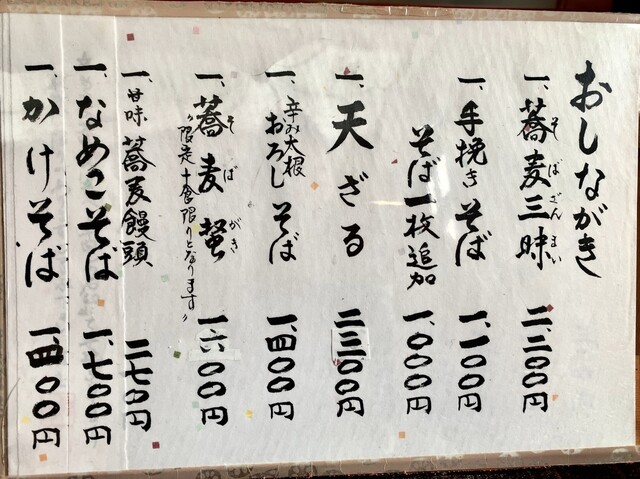 おしながき
一、蕎麦三昧 二、二〇〇円
そばざんまい
一、手挽きそば 一、一〇〇円
そば一枚追加 一、〇〇〇円
一、天ざる 二三〇〇円
一、辛み大根おろしそば 一、四〇〇円
一、蕎麦 一六〇〇円
そばがき
〃限定十食限りとなります〃
一、甘味 蕎麦饅頭 二七〇円
一、なめこそば 一、七〇〇円
一、かけそば 一、四〇〇円